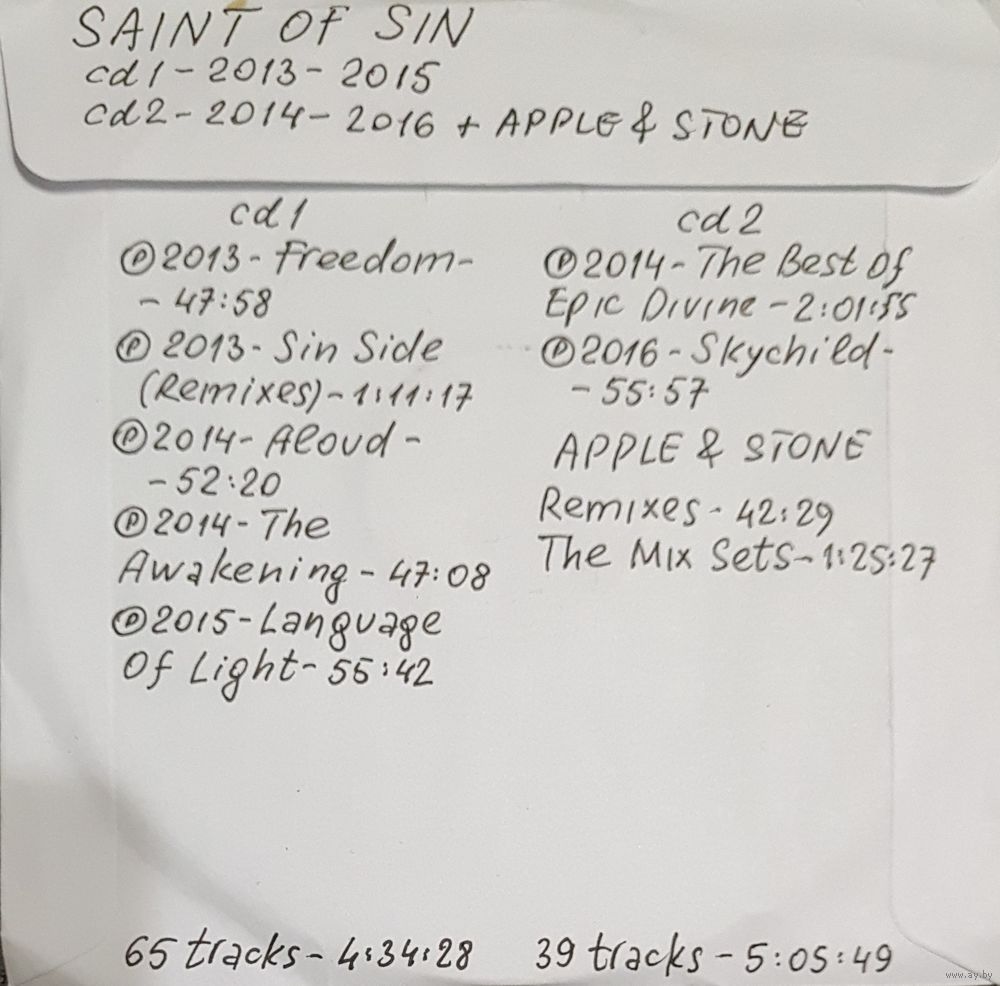 SAINT OF SIN
cd1-2013-2015
cd2-2014-2016 + APPLE & STONE
cd1
Ⓟ2013-Freedom-
-47:58
Ⓟ2013-Sin Side
(Remixes)-1:11:17
Ⓟ2014-Aloud-
-52:20
Ⓟ2014-The
Awakening-47:08
Ⓟ2015-Language
Of Light-55:42
65 tracks-4:34:28
cd2
Ⓟ2014-The Best Of
Epic Divine-2:01:55
Ⓟ2016-Skychild-
-55:57
APPLE & STONE
Remixes-42:29
The Mix Sets-1:25:27
39 tracks-5:05:49
www.ay.by